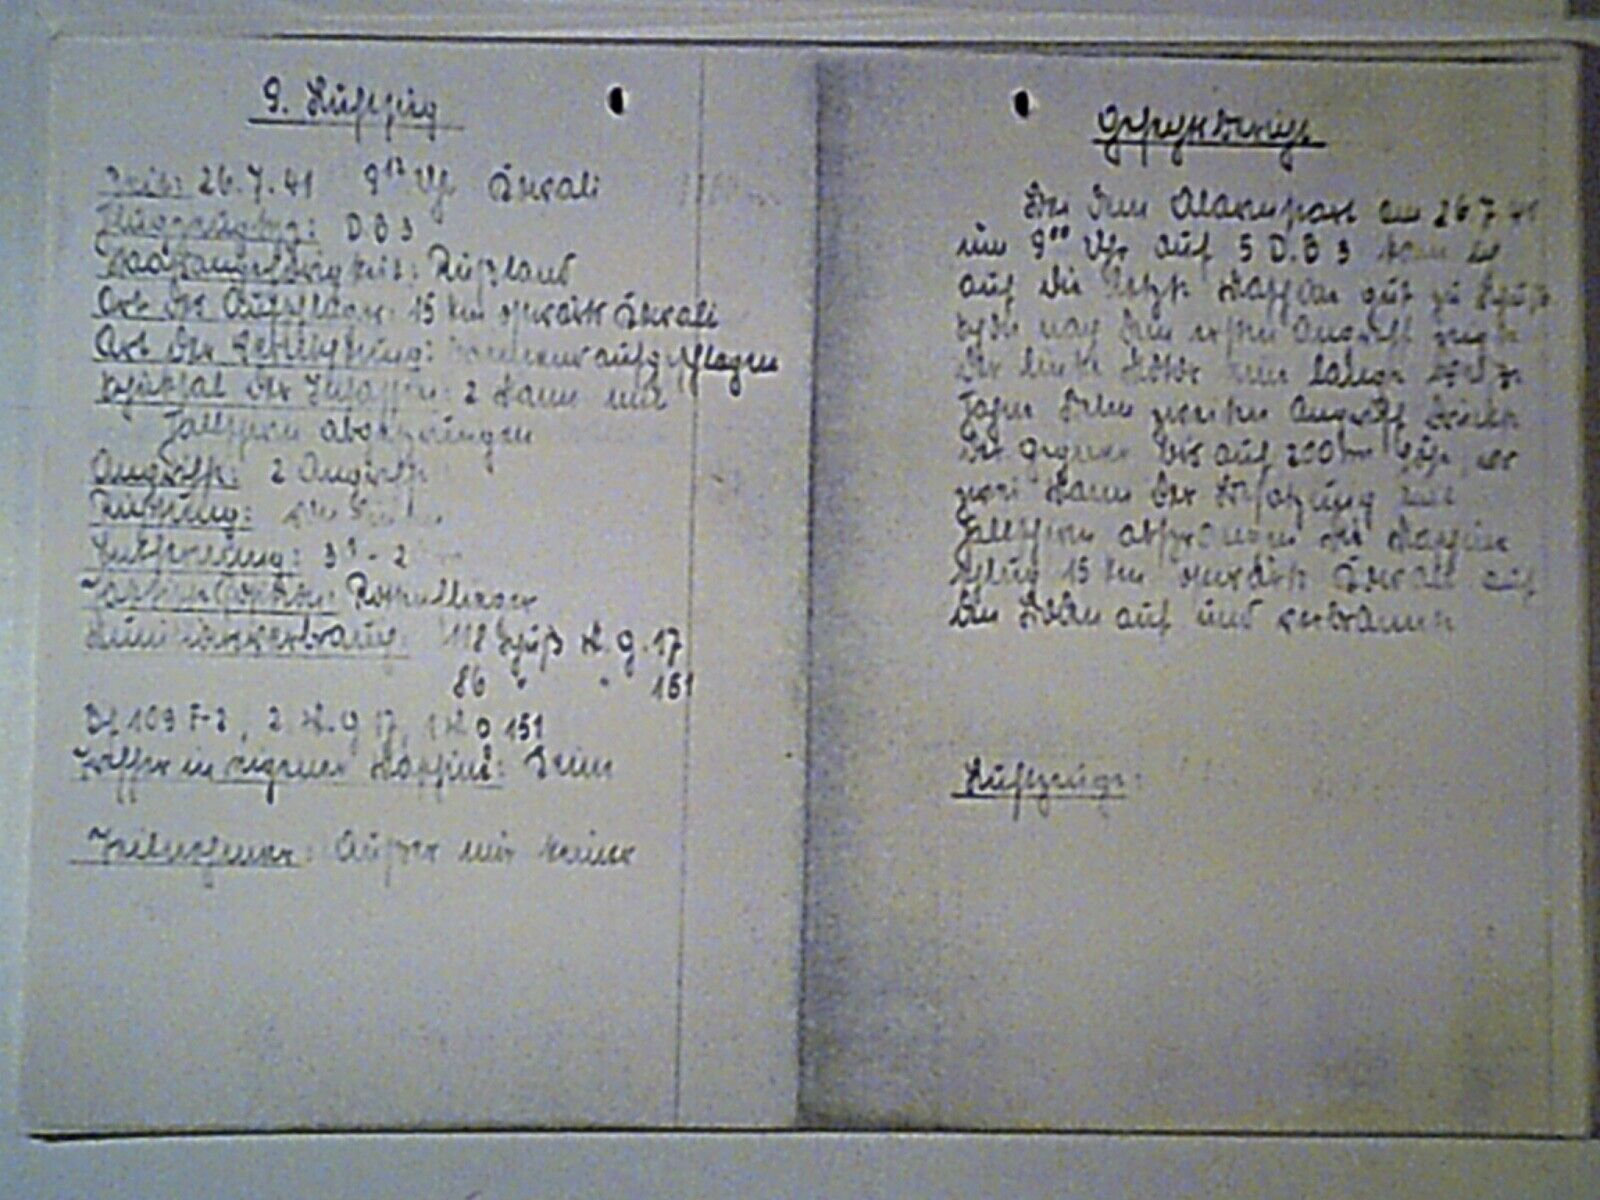 9. Luftsieg
Zeit: 26.7.41 9¹² Uhr
Flugzeugtyp: D B 3
Staatsangehörigkeit: Rußland
Art des Aufschlages: 15 km
Art der Vernichtung: aufgeschlagen
Schicksal der Insassen: 2 Mann mit
Fallschirm abgesprungen
Angriffe: 2 Angriffe
Richtung: von
Entfernung:
Munitionsverbrauch: 118 Schuß M.G. 17
86 " " 151
Bf 109 F-2, 2 M.G 17, 1 M G 151
Treffer in eigener Maschine: Keine
Teilnehmer: Außer mir keiner
Gefechtsbericht
Bei dem Alarmstart am 26.7.41
um 9⁰⁰ Uhr auf 5 D.B 3 kam ich
auf die letzte Maschine gut zu Schuß
nach dem ersten Angriff zeigte
der linke Motor eine lange
dem zweiten Angriff drückte
der Gegner bis auf 200 m Höhe, wo
zwei Mann der Besatzung mit
Fallschirm absprangen die Maschine
schlug 15 km auf
den Boden auf und verbrannte
Luftzeuge: